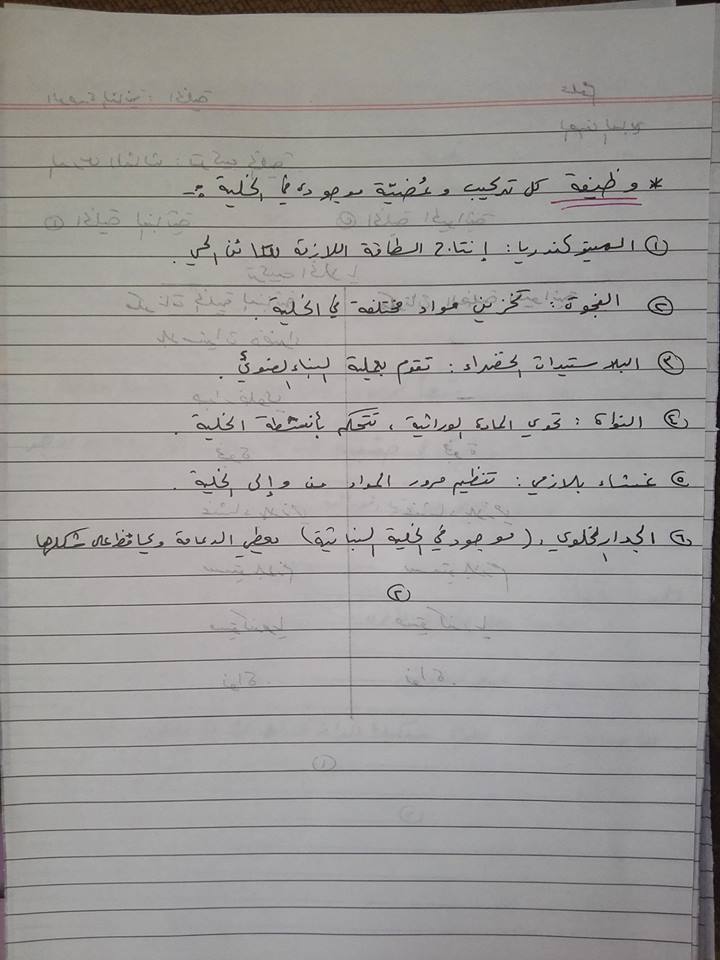 * وظيفة كل تركيب وعُضيّة موجودة في الخلية :-
① الميتوكندريا : إنتاج الطاقة اللازمة للكائن الحي .
② الفجوة : تخزين مواد مختلفة في الخلية .
③ البلاستيدات الخضراء : تقوم بعملية البناء الضوئي .
④ النواة : تحوي المادة الوراثية ، تتحكم بأنشطة الخلية .
⑤ غشاء بلازمي : تنظيم مرور المواد من وإلى الخلية .
⑥ الجدار الخلوي : (موجود في الخلية النباتية) يعطي الدعامة ويحافظ على شكلها
②